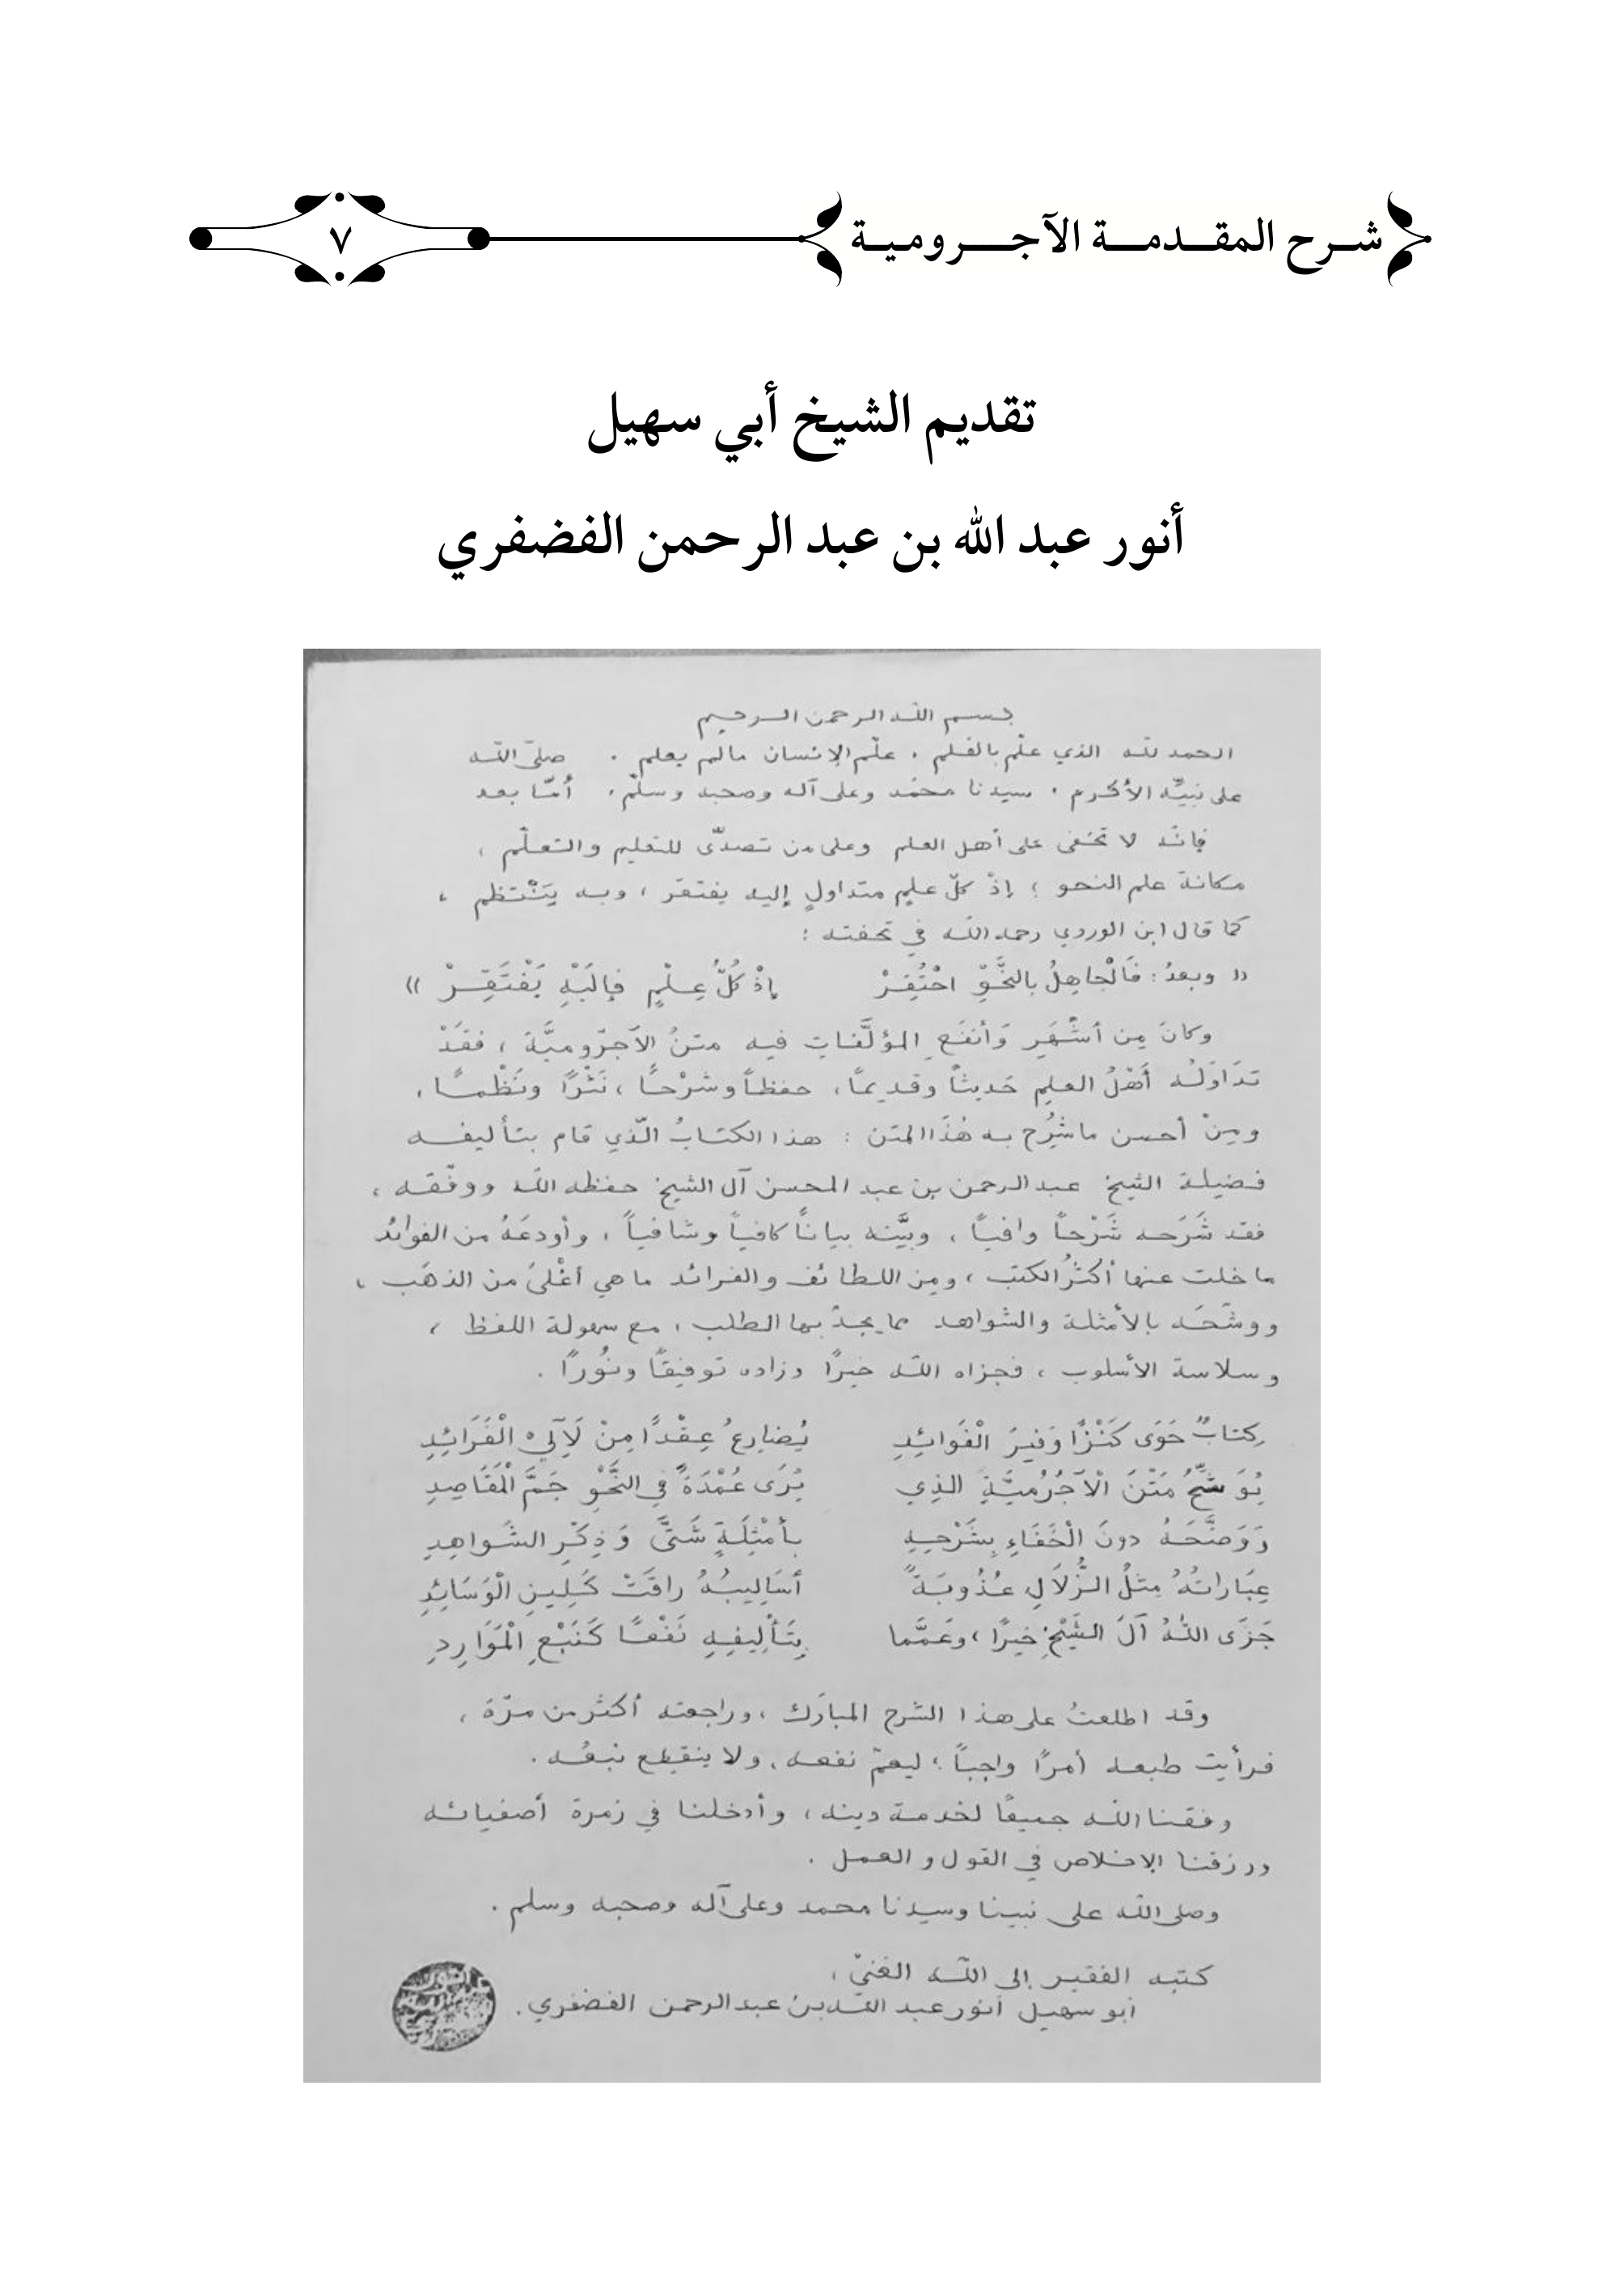 شرح المقدمة الآجرومية
٧
تقديم الشيخ أبي سهيل
أنور عبد الله بن عبد الرحمن الفضفري
بسم الله الرحمن الرحيم
الحمد لله الذي علّم بالقلم . علّم الإنسان مالم يعلم . صلى الله
على نبيّه الأكرم . سيدنا محمّد وعلى آله وصحبه وسلّم . أمّا بعد
فإنّه لا تخفى على أهل العلم وعلى من تصدّى للتعليم والتعلّم ،
مكانة علم النحو ؛ إذْ كلّ علمٍ متداولٍ إليه يفتقر ، وبه يَنْتظم ،
كما قال ابن الوردي رحمه الله في تحفته :
« وبعدُ : فَالْجاهِلُ بالنَّحْوِ احْتُقِرْ إذْ كُلُّ عِلْمٍ فإِلَيْهِ يَفْتَقِرْ »
وكانَ مِن أشْهَرِ وَأنفَعِ المؤلَّفاتِ فيه متنُ الآجرّوميَّةَ ، فقَدْ
تدَاوَلَه أَهْلُ العلمِ حَديثاً وقديمًا ، حفظاً وشرْحًا ، نَثْرًا ونَظْمًا ،
ومِنْ أحسن ما شُرِح به هٰذَا المتن : هذا الكتابُ الّذي قام بتأليفه
فضيلة الشيخ عبد الرحمن بن عبد المحسن آل الشيخ حفظه الله ووفّقه ،
فقد شَرَحه شَرْحاً وافياً ، وبيَّنه بياناً كافياً وشافياً ، وأودعَهُ من الفوائد
ما خلت عنها أكثرُ الكتب ، ومِن اللطائف والفرائد ما هي أغْلىٰ من الذهَب ،
ووشّحَه بالأمثلة والشواهد مما يجدّ بها الطلب ، مع سهولة اللفظ ،
وسلاسة الأسلوب ، فجزاه الله خيرًا وزاده توفيقًا ونُورًا .
كِتابٌ حَوَى كَنْزًا وَفيرَ الْفَوائِدِ يُضارِعُ عِقْدًا مِنْ لَآلِيْ الْفَرَائِدِ
يُوَشِّحُ مَتْنَ الْآجُرُميَّةِ الذِي يُرَى عُمْدَةً في النَّحْوِ جَمَّ الْمَقَاصِدِ
وَوَضَّحَهُ دونَ الْخَفَاءِ بِشَرْحِهِ بأمْثِلَةٍ شَتَّى وَذِكْرِ الشَواهِدِ
عِبَارَاتُهُ مِثلُ الزُّلَالِ عُذُوبَةً أسَالِيبُهُ راقَتْ كَلِينِ الْوَسَائِدِ
جَزَى اللهُ آلَ الشَّيْخِ خيرًا ، وعَمَّما بِتَأْلِيفِهِ نَفْعًا كَنَبْعِ الْمَوَارِدِ
وقد اطلعتُ على هذا الشرح المبارَك ، وراجعته أكثر من مرّة ،
فرأيت طبعه أمرًا واجباً ؛ ليعمّ نفعه ، ولا ينقطع نبعُه .
وفقنا الله جميعًا لخدمة دينه ، وأدخلنا في زمرة أصفيائه
ورزقنا الإخلاص في القول والعمل .
وصلى الله على نبينا وسيدنا محمد وعلى آله وصحبه وسلم .
كتبه الفقير إلى الله الغنيّ ،
أبو سهيل أنور عبد الله بن عبد الرحمن الفضفري .